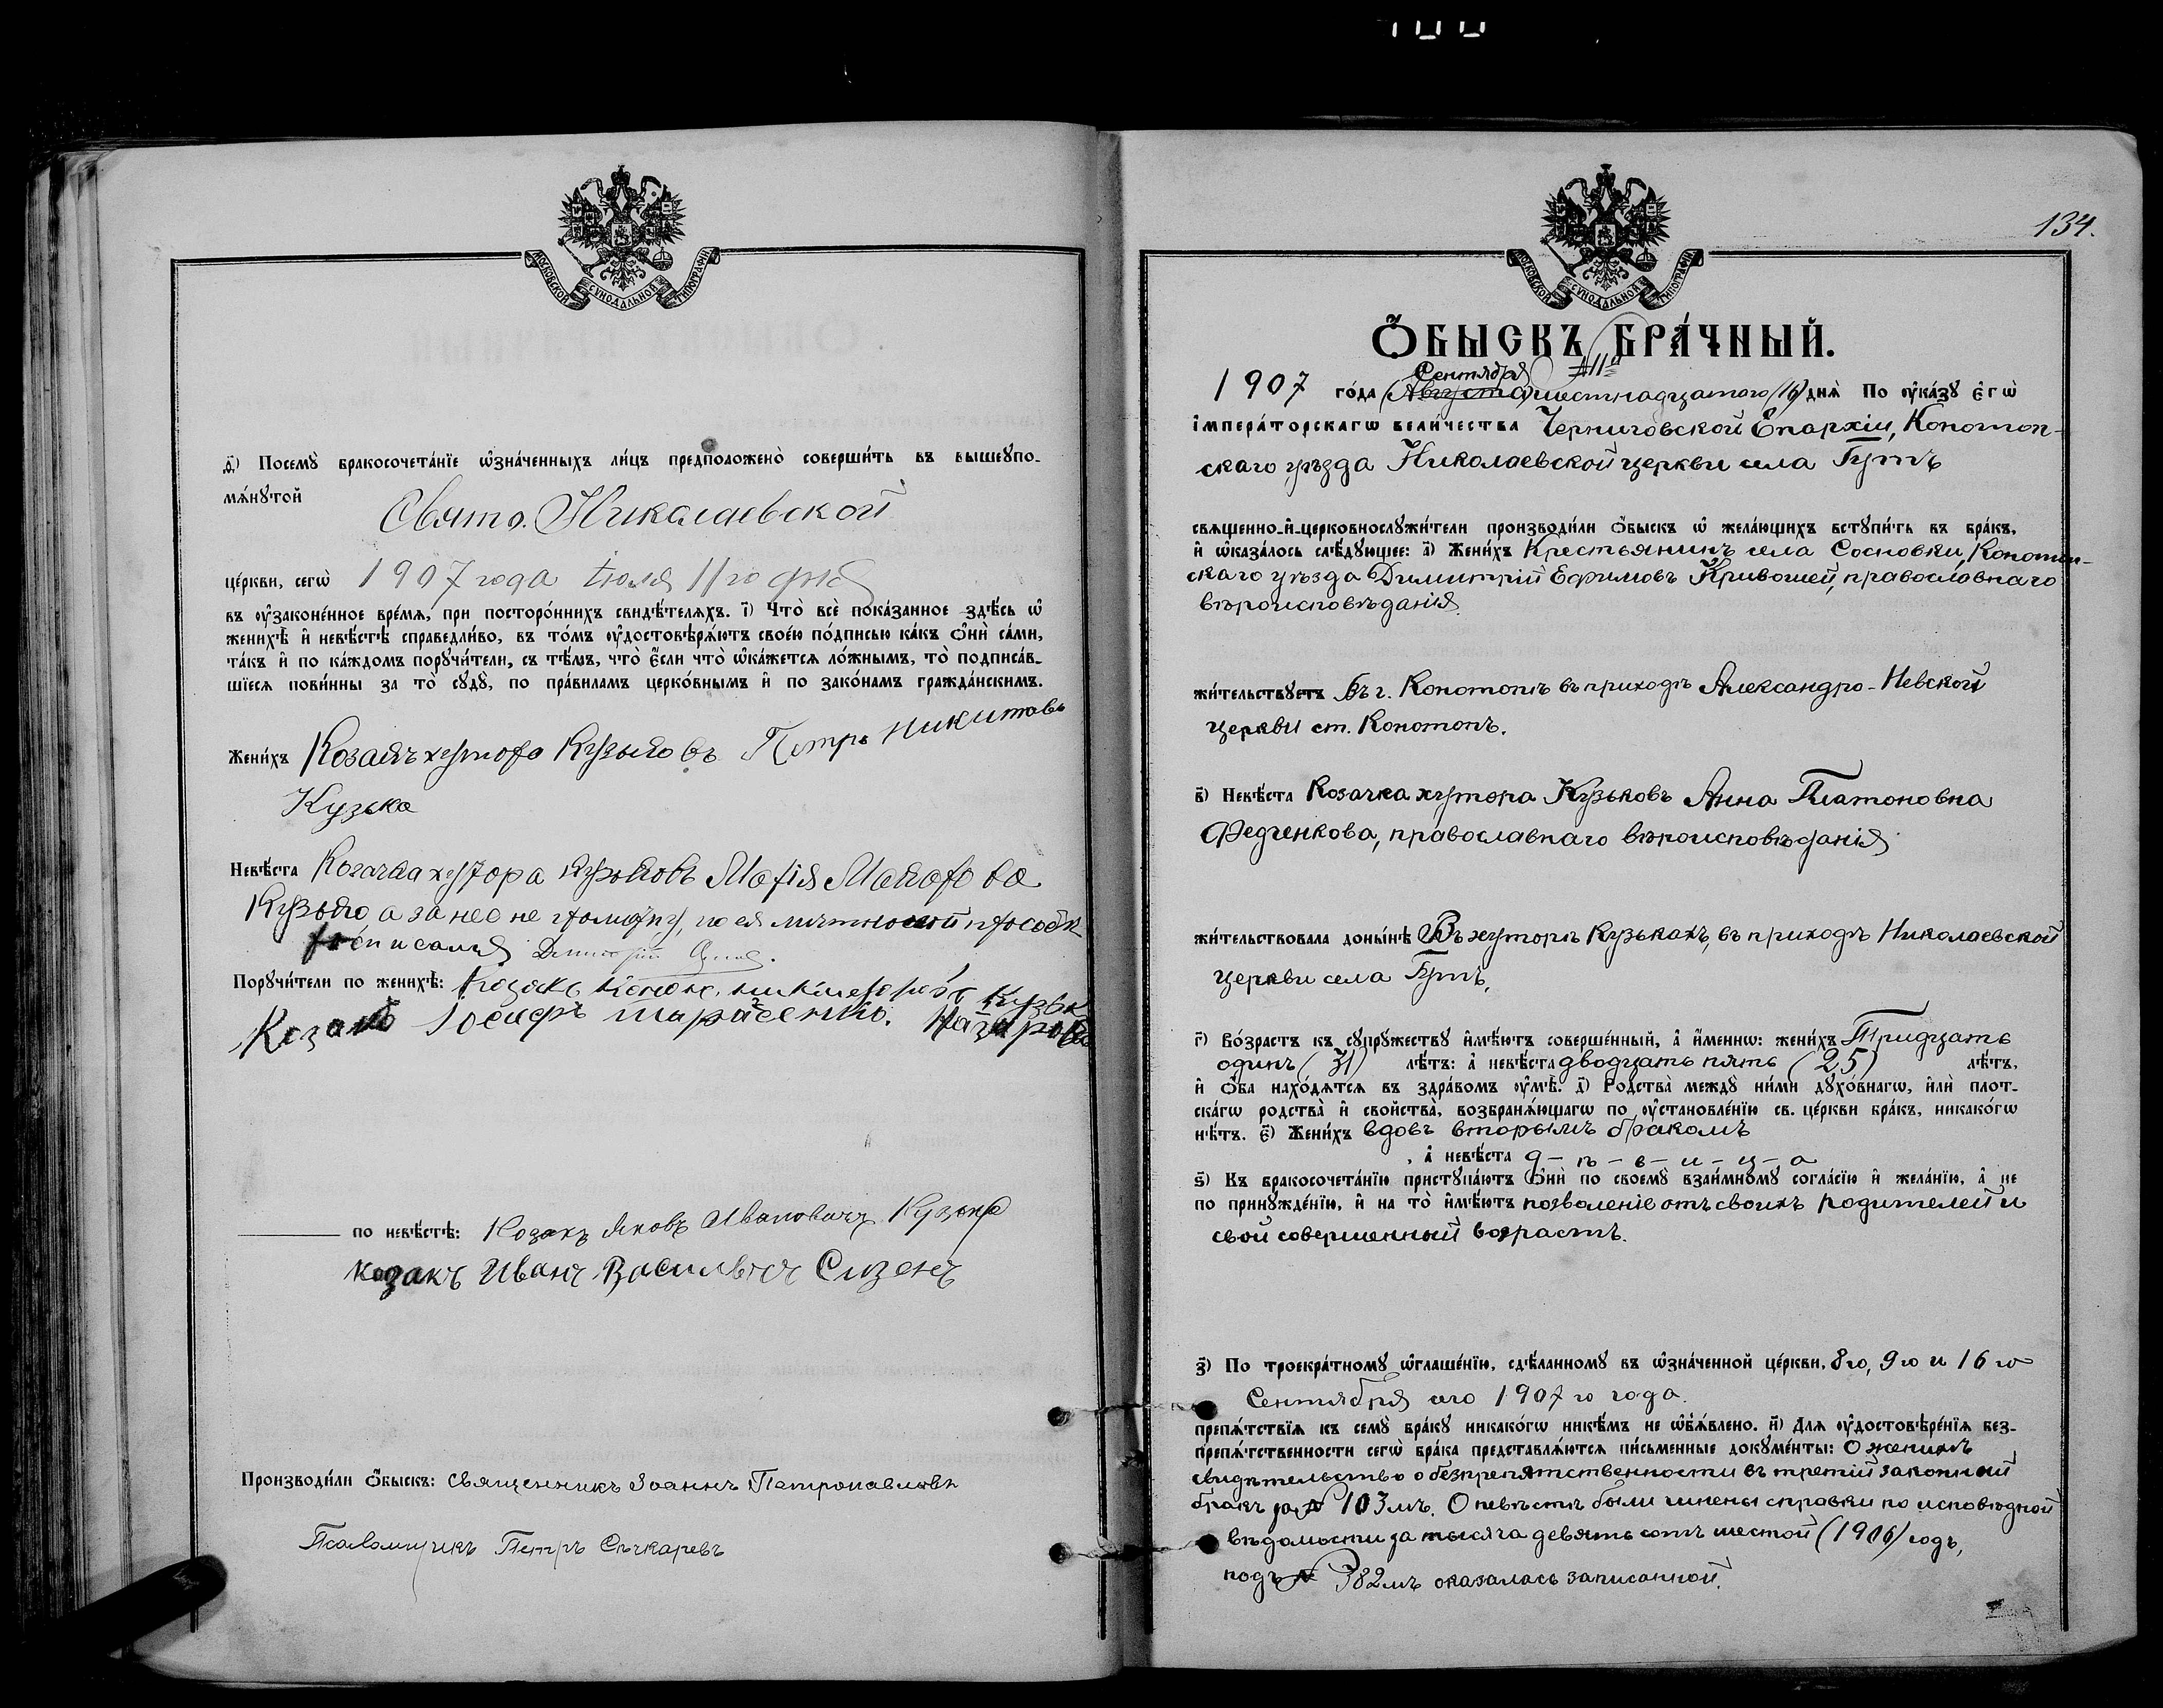 100
МОСКОВСКОЙ СѴНОДАЛЬНОЙ ТИПОГРАФІИ
ѳ҃) Посемꙋ̀ бракосочета́нїе ѡ҆зна́ченныхъ ли́цъ предположено̀ соверши́ть въ вышеупо-
мѧ́нꙋтой Свято-Николаевской
це́ркви, сегѡ̀ 1907 года Іюля 11го дня
въ ᲂу҆законе́нное вре́мѧ, при посторо́ннихъ свидѣ́телѧхъ. і҃) Что̀ всѐ пока́занное здѣ́сь ѡ҆
женихѣ̀ и҆ невѣ́стѣ справедли́во, въ то́мъ ᲂу҆достовѣрѧ́ютъ свое́ю по́дписью ка́къ ѻ҆нѝ са́ми,
та́къ и҆ по ка́ждомъ порꙋчи́тели, съ тѣ́мъ, что̀ є҆́сли что̀ ѡ҆ка́жетсѧ ло́жнымъ, то̀ подписа́в-
шїесѧ пови́нны за то̀ сꙋдꙋ̀, по пра́виламъ церко́внымъ и҆ по зако́намъ гражда́нскимъ.
Жени́хъ Козакъ хутора Кузьковъ Петръ Никитовъ
Кузько
Невѣ́ста Козачка хутора Кузьковъ Марія Макарова
Кузько, а за нее не грамотну, по ея личной прозьбѣ
росписался Дмитрій
Порꙋчи́тели по женихѣ̀: Козакъ Никифоровъ Кузько
Козакъ Іосифъ Тарасенко. Назаровъ
по невѣ́стѣ: Козакъ Яковъ Ивановичъ Кузько
козакъ Иванъ Васильвичъ Сизенъ
Производи́ли ѻ҆́быскъ: Священникъ Іоаннъ Петропавловскій
Псаломщикъ Петръ Сѣчкаревъ
134.
МОСКОВСКОЙ СѴНОДАЛЬНОЙ ТИПОГРАФІИ
Ѻ҆́БЫСКЪ БРА́ЧНЫЙ.
Сентября
1907 го́да (Августа) шестнадцатаго (16) днѧ̀ По ᲂу҆ка́зꙋ є҆гѡ̀
і҆мпера́торскагѡ вели́чества Черниговской Епархіи, Конотоп-
скаго уѣзда Николаевской церкви села Гутъ
свѧщенно-и҆-церковнослꙋжи́тели производи́ли ѻ҆́быскъ ѡ҆ жела́ющихъ встꙋпи́ть въ бра́къ,
и҆ ѡ҆каза́лось слѣ́дꙋющее: а҃) Жени́хъ Крестьянинъ села Сосновки, Конотоп-
скаго уѣзда Димитрій Ефимовъ Кривошей, православнаго
вѣроисповѣданія.
жи́тельствꙋетъ въ г. Конотопѣ въ приходѣ Александро-Невской
церкви ст. Конотопъ.
в҃) Невѣ́ста Козачка хутора Кузьковъ Анна Платоновна
Федченкова, православнаго вѣроисповѣданія
жи́тельствовала доны́нѣ Въ хуторѣ Кузькахъ, въ приходѣ Николаевской
церкви села Гутъ.
г҃) Во́зрастъ къ сꙋпрꙋ́жествꙋ и҆мѣ́ютъ соверше́нный, а҆ и҆́меннѡ: жени́хъ Тридцать
одинъ (31) лѣ́тъ: а҆ невѣ́ста двадцать пять (25) лѣ́тъ,
и҆ ѻ҆́ба нахо́дѧтсѧ въ здра́вомъ ᲂу҆мѣ̀. д҃) Родства̀ междꙋ̀ ни́ми дꙋхо́внагѡ, и҆лѝ плот-
ска́гѡ родства̀ и҆ свойства̀, возбранѧ́ющагѡ по ᲂу҆становле́нїю св. це́ркви бра́къ, никако́гѡ
нѣ́тъ. є҃) Жени́хъ вдовъ вторымъ бракомъ
, а҆ невѣ́ста д-ѣ-в-и-ц-а
ѕ҃) Къ бракосочета́нїю пристꙋпа́ютъ ѻ҆нѝ по своемꙋ̀ взаи́мномꙋ согла́сїю и҆ жела́нїю, а҆ не
по принꙋжде́нїю, и҆ на то̀ и҆мѣ́ютъ позволеніе отъ своихъ родителей и
свой совершенный возрастъ.
з҃) По троекра́тномꙋ ѡ҆глаше́нїю, сдѣ́ланномꙋ въ ѡ҆зна́ченной це́ркви, 8го, 9го и 16го
Сентября сего 1907го года.
препѧ́тствїѧ къ семꙋ̀ бра́кꙋ никако́гѡ никѣ́мъ не ѡ҆б̾ѧ́влено. и҃) Длѧ ᲂу҆достовѣре́нїѧ без-
препѧ́тственности сегѡ̀ бра́ка представлѧ́ютсѧ пи́сьменные докꙋме́нты: О женихѣ
свидѣтельство о безпрепятственности въ третій законный
бракъ за № 103мъ. О невѣстѣ были чинены справки по исповѣдной
вѣдомости за тысяча девять сотъ шестой (1906) годъ,
подъ № 382мъ оказалась записанной.